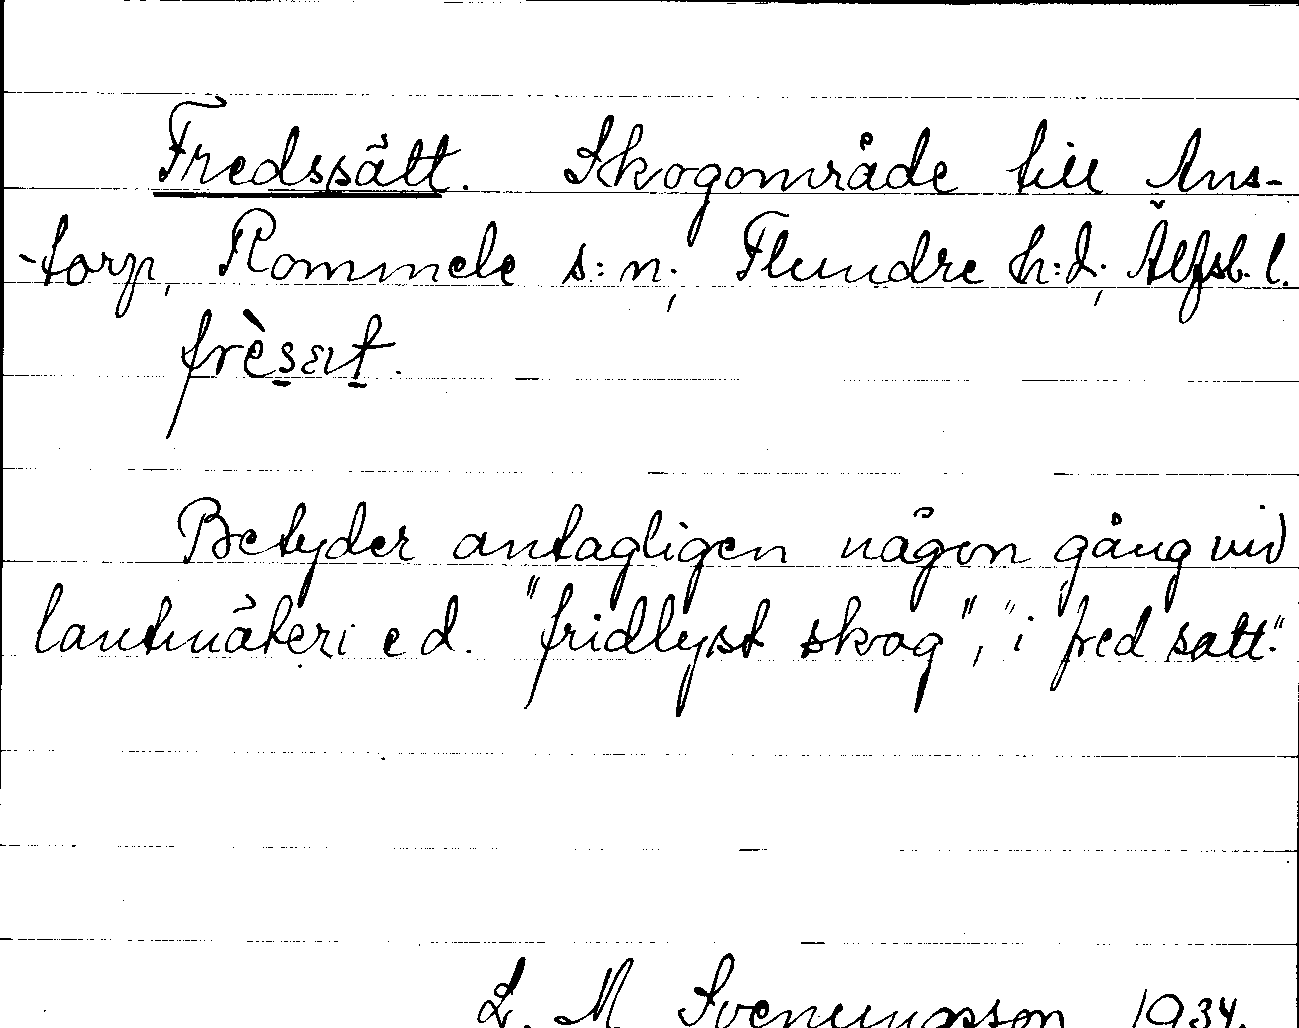 Fredssätt. Skogområde till Ans-
-torp, Rommele s:n; Flundre h:d; Älfsb. l.
frèsæt.
Betyder antagligen någon gång vid
lantmäteri e d. "fridlyst skog", "i fred satt."
L. M Svenungsson 1934.